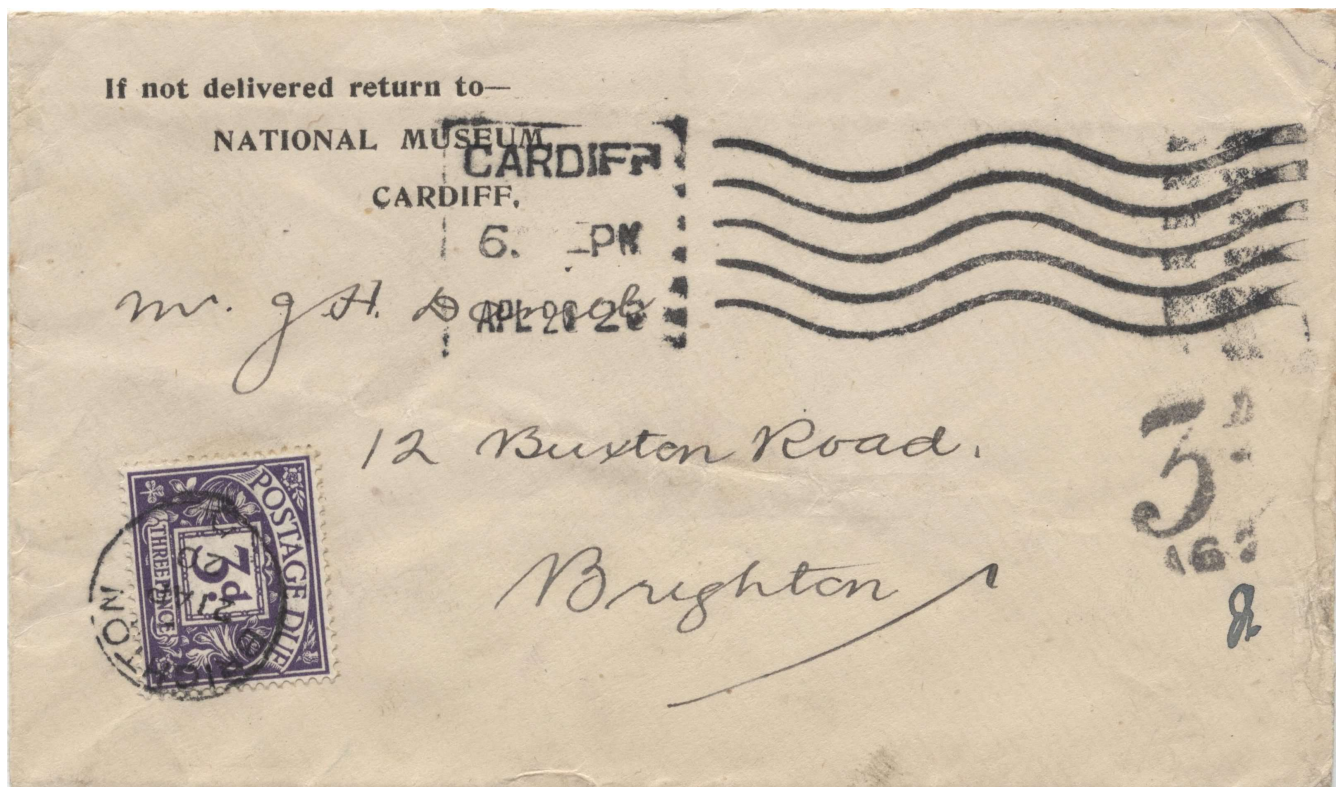 If not delivered return to—
NATIONAL MUSEUM
CARDIFF.
CARDIFF
6. PM
APL 20
Mr. J H.
12 Buxton Road.
Brighton
3d
POSTAGE DUE
3d.
THREEPENCE
BRIGHTON